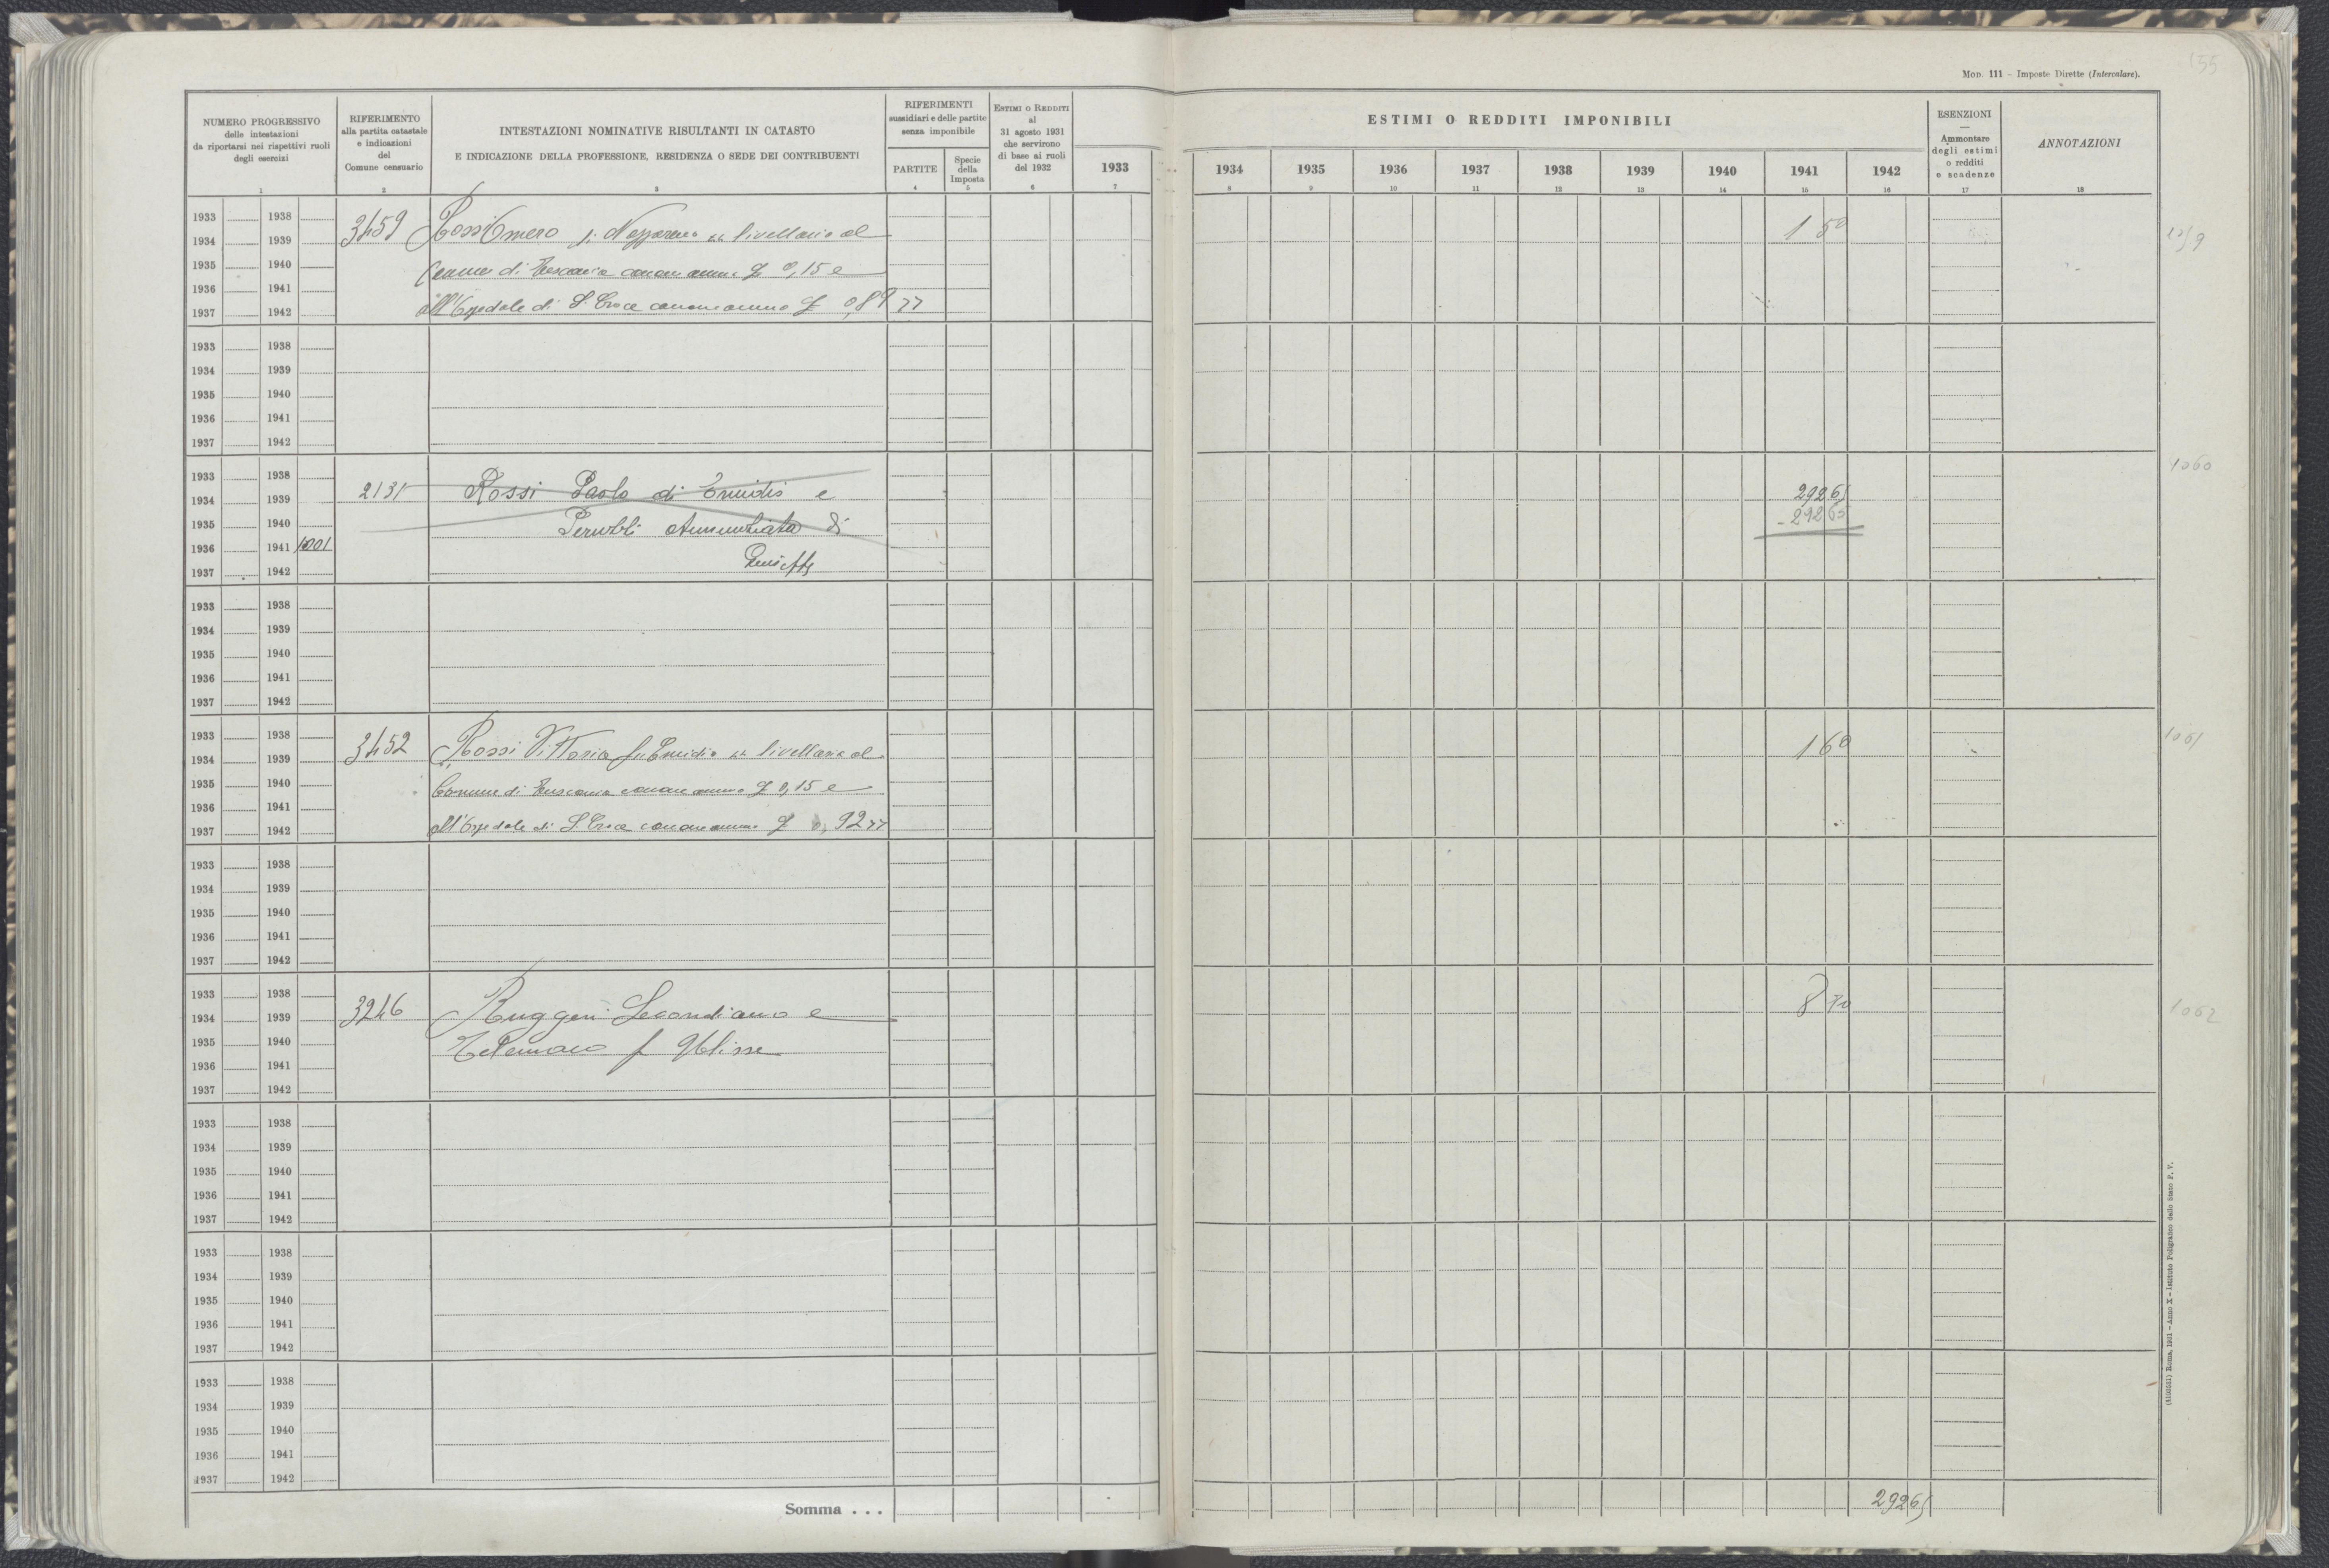 155
MOD. 111 – Imposte Dirette (Intercalare).
NUMERO PROGRESSIVO
delle intestazioni
da riportarsi nei rispettivi ruoli
degli esercizi
1
RIFERIMENTO
alla partita catastale
e indicazioni
del
Comune censuario
2
INTESTAZIONI NOMINATIVE RISULTANTI IN CATASTO
E INDICAZIONE DELLA PROFESSIONE, RESIDENZA O SEDE DEI CONTRIBUENTI
3
RIFERIMENTI
sussidiari e delle partite
senza imponibile
PARTITE
4
Specie
della
Imposta
5
ESTIMI O REDDITI
al
31 agosto 1931
che servirono
di base ai ruoli
del 1932
6
1933
7
ESTIMI O REDDITI IMPONIBILI
1934 1935 1936 1937 1938 1939 1940 1941 1942
8 9 10 11 12 13 14 15 16
ESENZIONI
—
Ammontare
degli estimi
o redditi
e scadenze
17
ANNOTAZIONI
18
1933 1938
1934 1939 3459 Rossi Omero fu Nazzareno " livellario al 1 50 1059
1935 1940 Comune di Tuscania canone annuo £ 0,15 e
1936 1941
1937 1942 all'Ospedale di S. Croce canone annuo £ 0,89 "
1933 1938
1934 1939
1935 1940
1936 1941
1937 1942
1933 1938 1060
1934 1939 2131 Rossi Paolo di Emidio e 292 65
1935 1940 Annunziata di - 292 65
1936 1941 1001
1937 1942
1933 1938
1934 1939
1935 1940
1936 1941
1937 1942
1933 1938 1061
1934 1939 3452 Rossi Vittoria fu Emidio " livellaria al 1 60
1935 1940 Comune di Tuscania canone annuo £ 0,15 e
1936 1941
1937 1942 all'Ospedale di S. Croce canone annuo £ 0,92 "
1933 1938
1934 1939
1935 1940
1936 1941
1937 1942
1933 1938
1934 1939 3246 Ruggeri Secondiano e 8 70 1062
1935 1940 Telemaco f Ulisse
1936 1941
1937 1942
1933 1938
1934 1939
1935 1940
1936 1941
1937 1942
1933 1938
1934 1939
1935 1940
1936 1941
1937 1942
1933 1938
1934 1939
1935 1940
1936 1941
1937 1942
Somma . . . 292 65
Roma, 1931 – Anno X – Istituto Poligrafico dello Stato P. V.